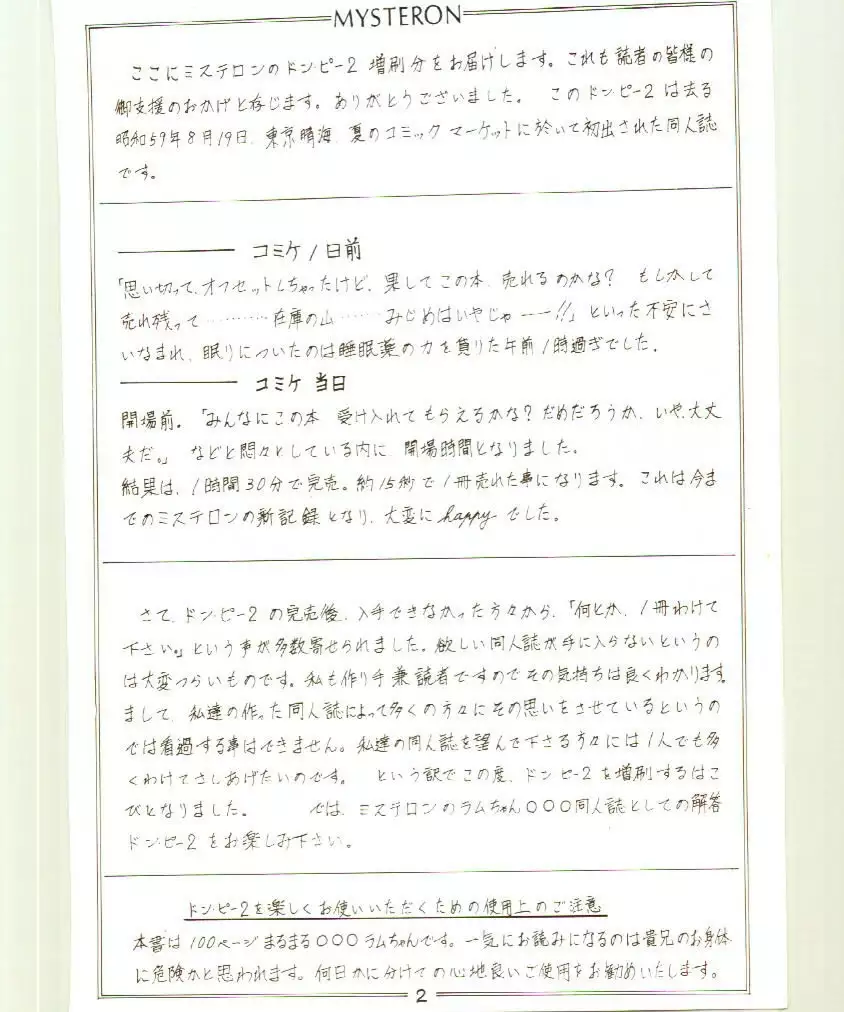 MYSTERON
ここにミステロンのドン・ピー2 増刷分をお届けします。これも読者の皆様の
御支援のおかげと存じます。ありがとうございました。 このドン・ピー2は去る
昭和59年8月19日、東京晴海、夏のコミックマーケットに於いて初出された同人誌
です。
コミケ1日前
「思い切って、オフセットしちゃったけど、果してこの本、売れるのかな? もしかして
売れ残って…………在庫の山……みじめはいやじゃーー!!」といった不安にさ
いなまれ、眠りについたのは睡眠薬の力を借りた午前1時過ぎでした。
コミケ当日
開場前。「みんなにこの本 受け入れてもらえるかな? だめだろうか、いや、大丈
夫だ。」 などと悶々としている内に、開場時間となりました。
結果は、1時間30分で完売。約15秒で1冊売れた事になります。これは今ま
でのミステロンの新記録となり、大変にhappyでした。
さて、ドン・ピー2の完売後、入手できなかった方々から、「何とか、1冊わけて
下さい。」という事が多数寄せられました。欲しい同人誌が手に入らないというの
は大変つらいものです。私も作り手兼読者ですのでその気持ちは良くわかります。
まして、私達の作った同人誌によって多くの方々にその思いをさせているというの
では看過する事はできません。私達の同人誌を望んで下さる方々には1人でも多
くわけてさしあげたいのです。 という訳でこの度、ドン・ピー2を増刷するはこ
びとなりました。 では、ミステロンのラムちゃん○○○同人誌としての解答
ドン・ピー2をお楽しみ下さい。
ドン・ピー2を楽しくお使いいただくための使用上のご注意
本書は100ページまるまる○○○ラムちゃんです。一気にお読みになるのは貴兄のお身体
に危険かと思われます。何日かに分けての心地良いご使用をお勧めいたします。
2